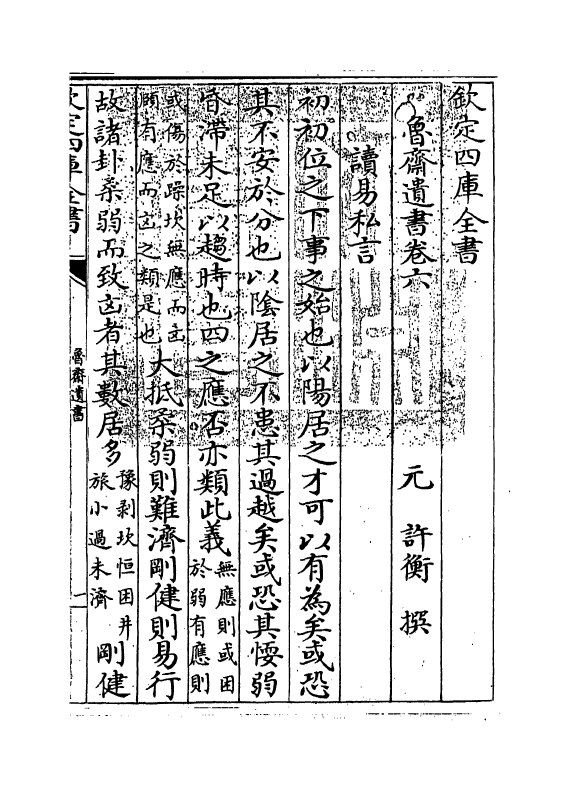 欽定四庫全書
魯齋遺書卷六
元 許衡 撰
讀易私言
初初位之下事之始也以陽居之才可以有為矣或恐
其不安於分也以陰居之不患其過越矣或恐其懦弱
昏滯未足以趨時也四之應否亦類此義無應則或困
於弱有應則
或傷於躁坎無應而凶
頤有應而凶之類是也大抵柔弱則難濟剛健則易行
故諸卦柔弱而致凶者其數居多豫剥坎恒困井
旅小過未濟剛健
欽定四庫全書
魯齋遺書
一